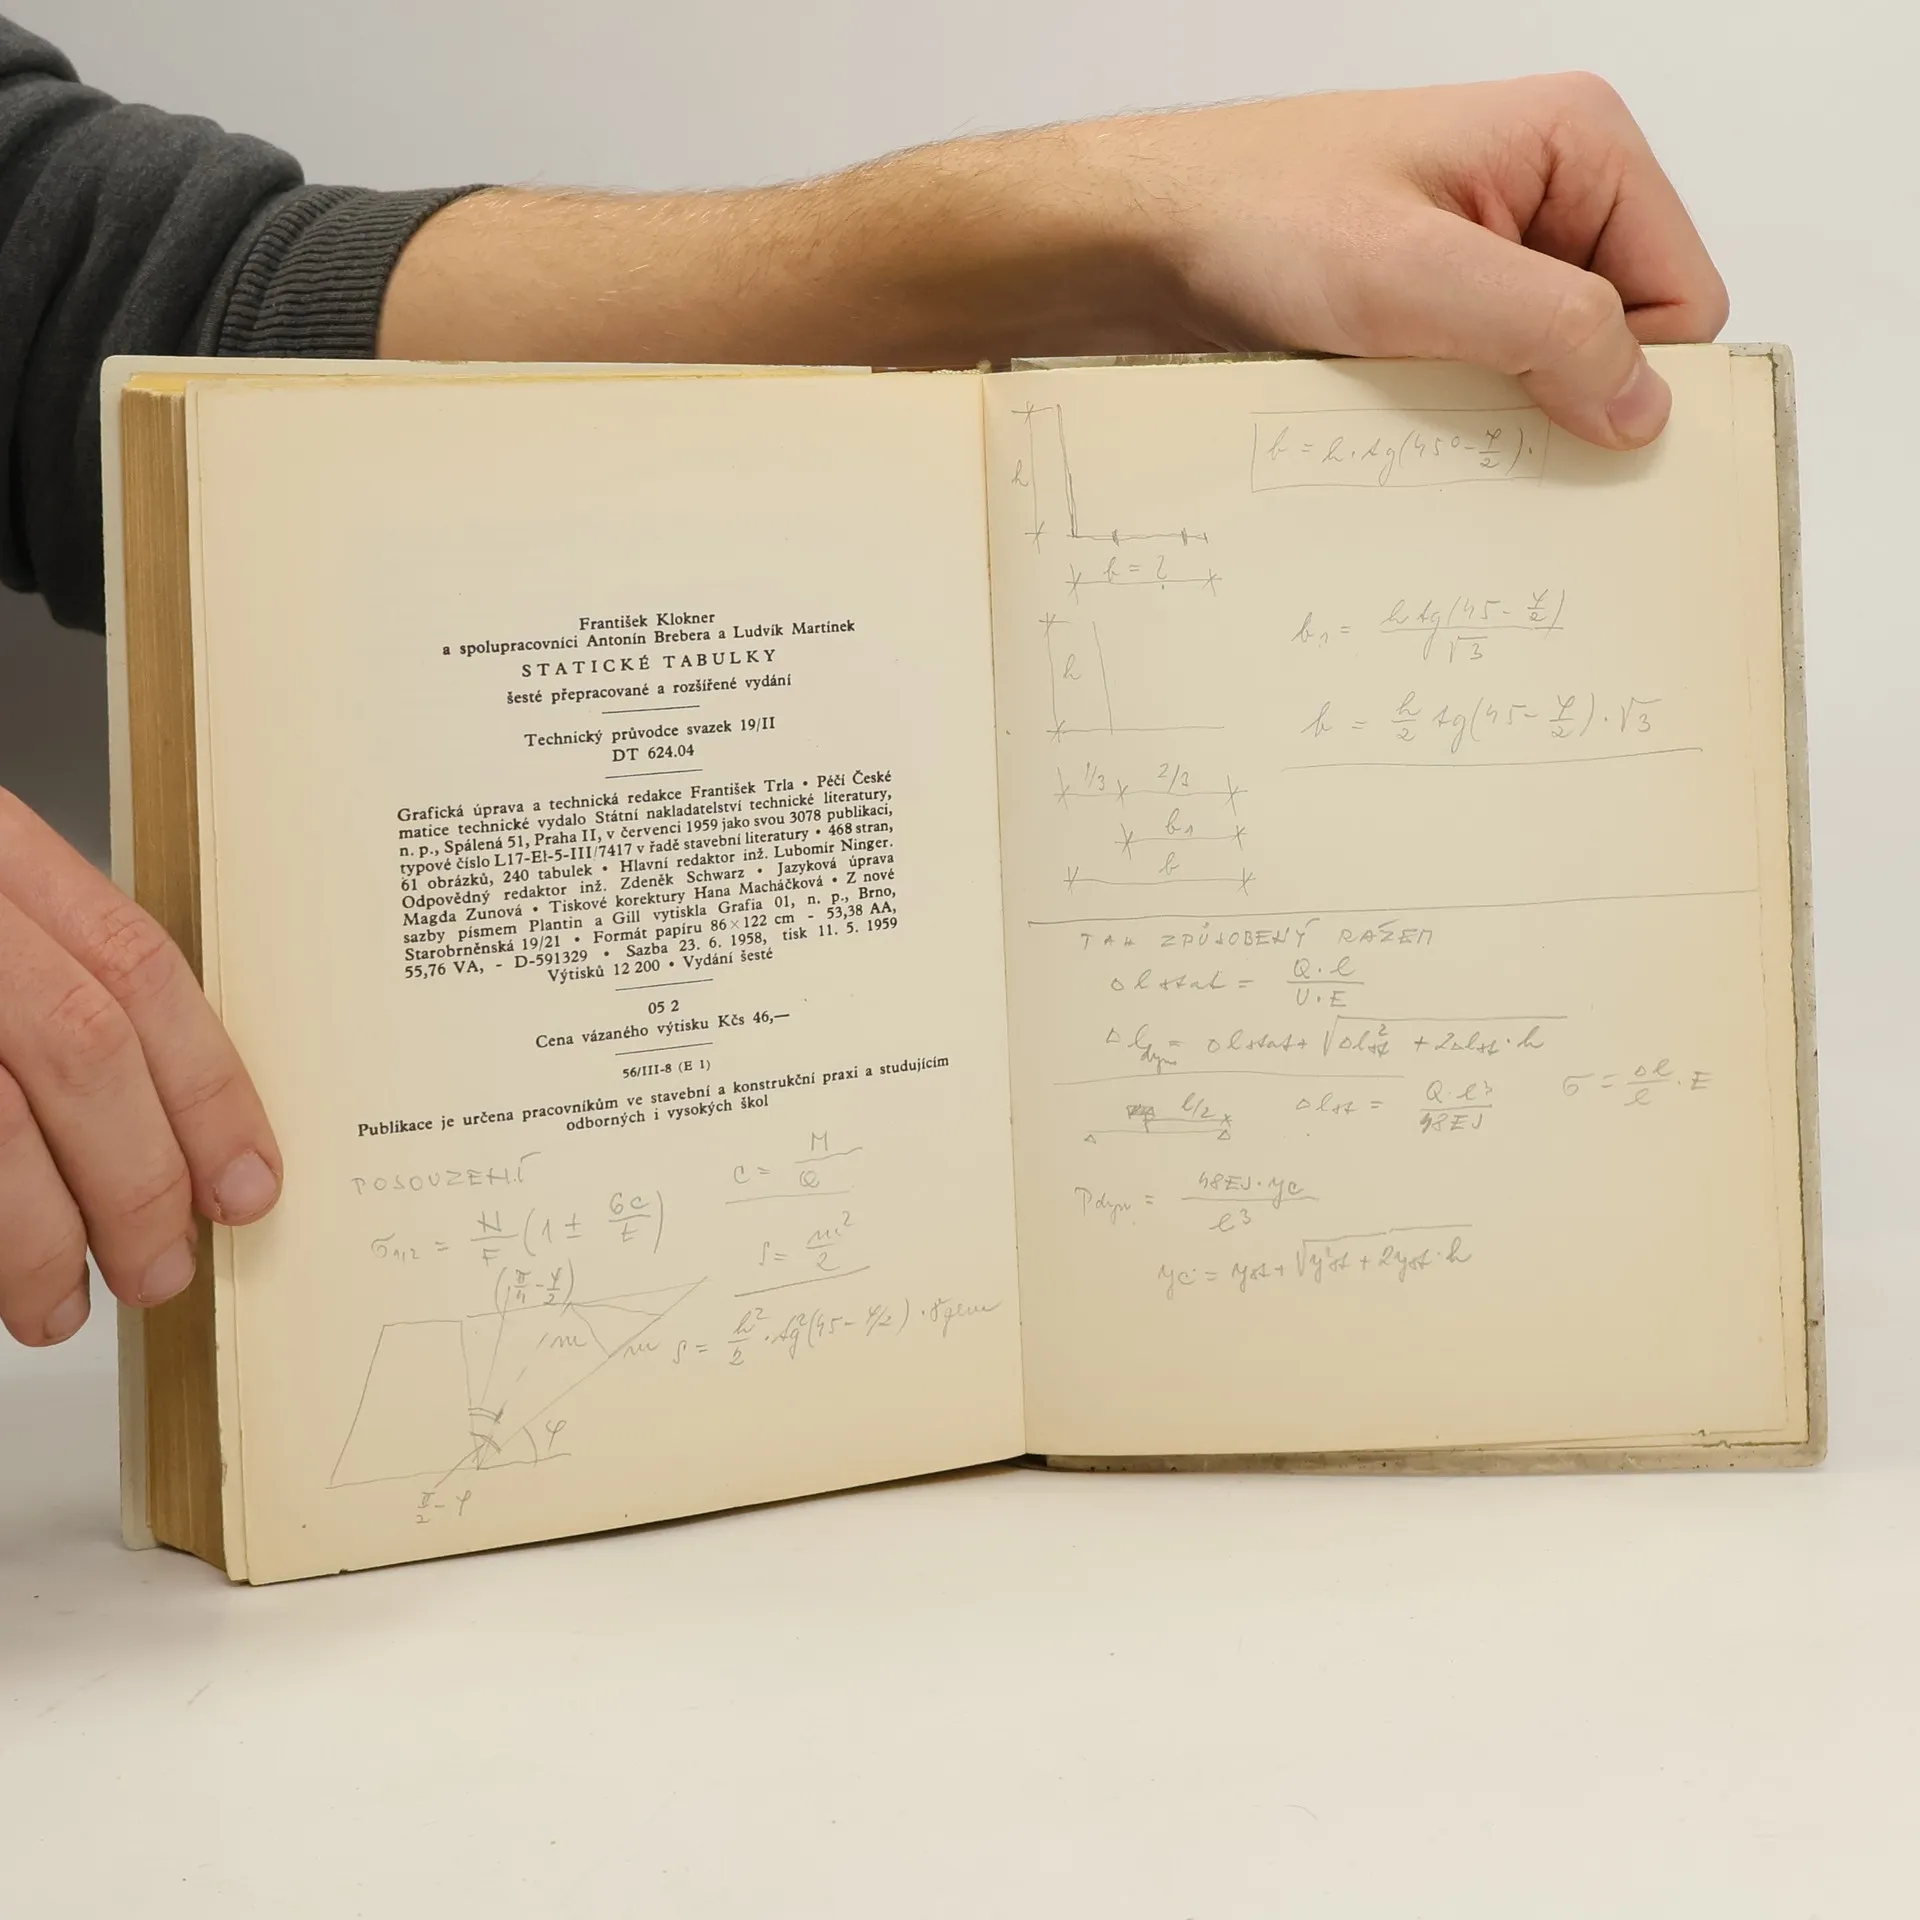 František Klokner
a spolupracovníci Antonín Brebera a Ludvík Martínek
STATICKÉ TABULKY
šesté přepracované a rozšířené vydání
Technický průvodce svazek 19/II
DT 624.04
Grafická úprava a technická redakce František Trla • Péčí České
matice technické vydalo Státní nakladatelství technické literatury,
n. p., Spálená 51, Praha II, v červenci 1959 jako svou 3078 publikaci,
typové číslo L17-E1-5-III/7417 v řadě stavební literatury • 468 stran,
61 obrázků, 240 tabulek • Hlavní redaktor inž. Lubomír Ninger.
Odpovědný redaktor inž. Zdeněk Schwarz • Jazyková úprava
Magda Zunová • Tiskové korektury Hana Macháčková • Z nové
sazby písmem Plantin a Gill vytiskla Grafia 01, n. p., Brno,
Starobrněnská 19/21 • Formát papíru 86×122 cm - 53,38 AA,
55,76 VA, - D-591329 • Sazba 23. 6. 1958, tisk 11. 5. 1959
Výtisků 12 200 • Vydání šesté
05 2
Cena vázaného výtisku Kčs 46,—
56/III-8 (E 1)
Publikace je určena pracovníkům ve stavební a konstrukční praxi a studujícím
odborných i vysokých škol
POSOUZENÍ
σ1,2 = N/F (1 ± 6c/t)
c = M/Q
S = m²/2
(π/4 - φ/2)
m
m
S = h²/2 · tg²(45 - φ/2) · γzem
φ
π/2 - φ
h
b = h · tg(45° - φ/2).
b = ?
h
b1 = h tg(45 - φ/2)/√3
b = h/2 tg(45 - φ/2) · √3
1/3 2/3
b1
b
TAH ZPŮSOBENÝ RÁZEM
Δl stat = Q·l/U·E
Δl dyn = Δl stat + √Δl st² + 2Δl st · h
l/2
Δl st = Q·l³/48EJ
σ = Δl/l · E
Pdyn = 48EJ · yc/l³
yc = yst + √y²st + 2yst · h